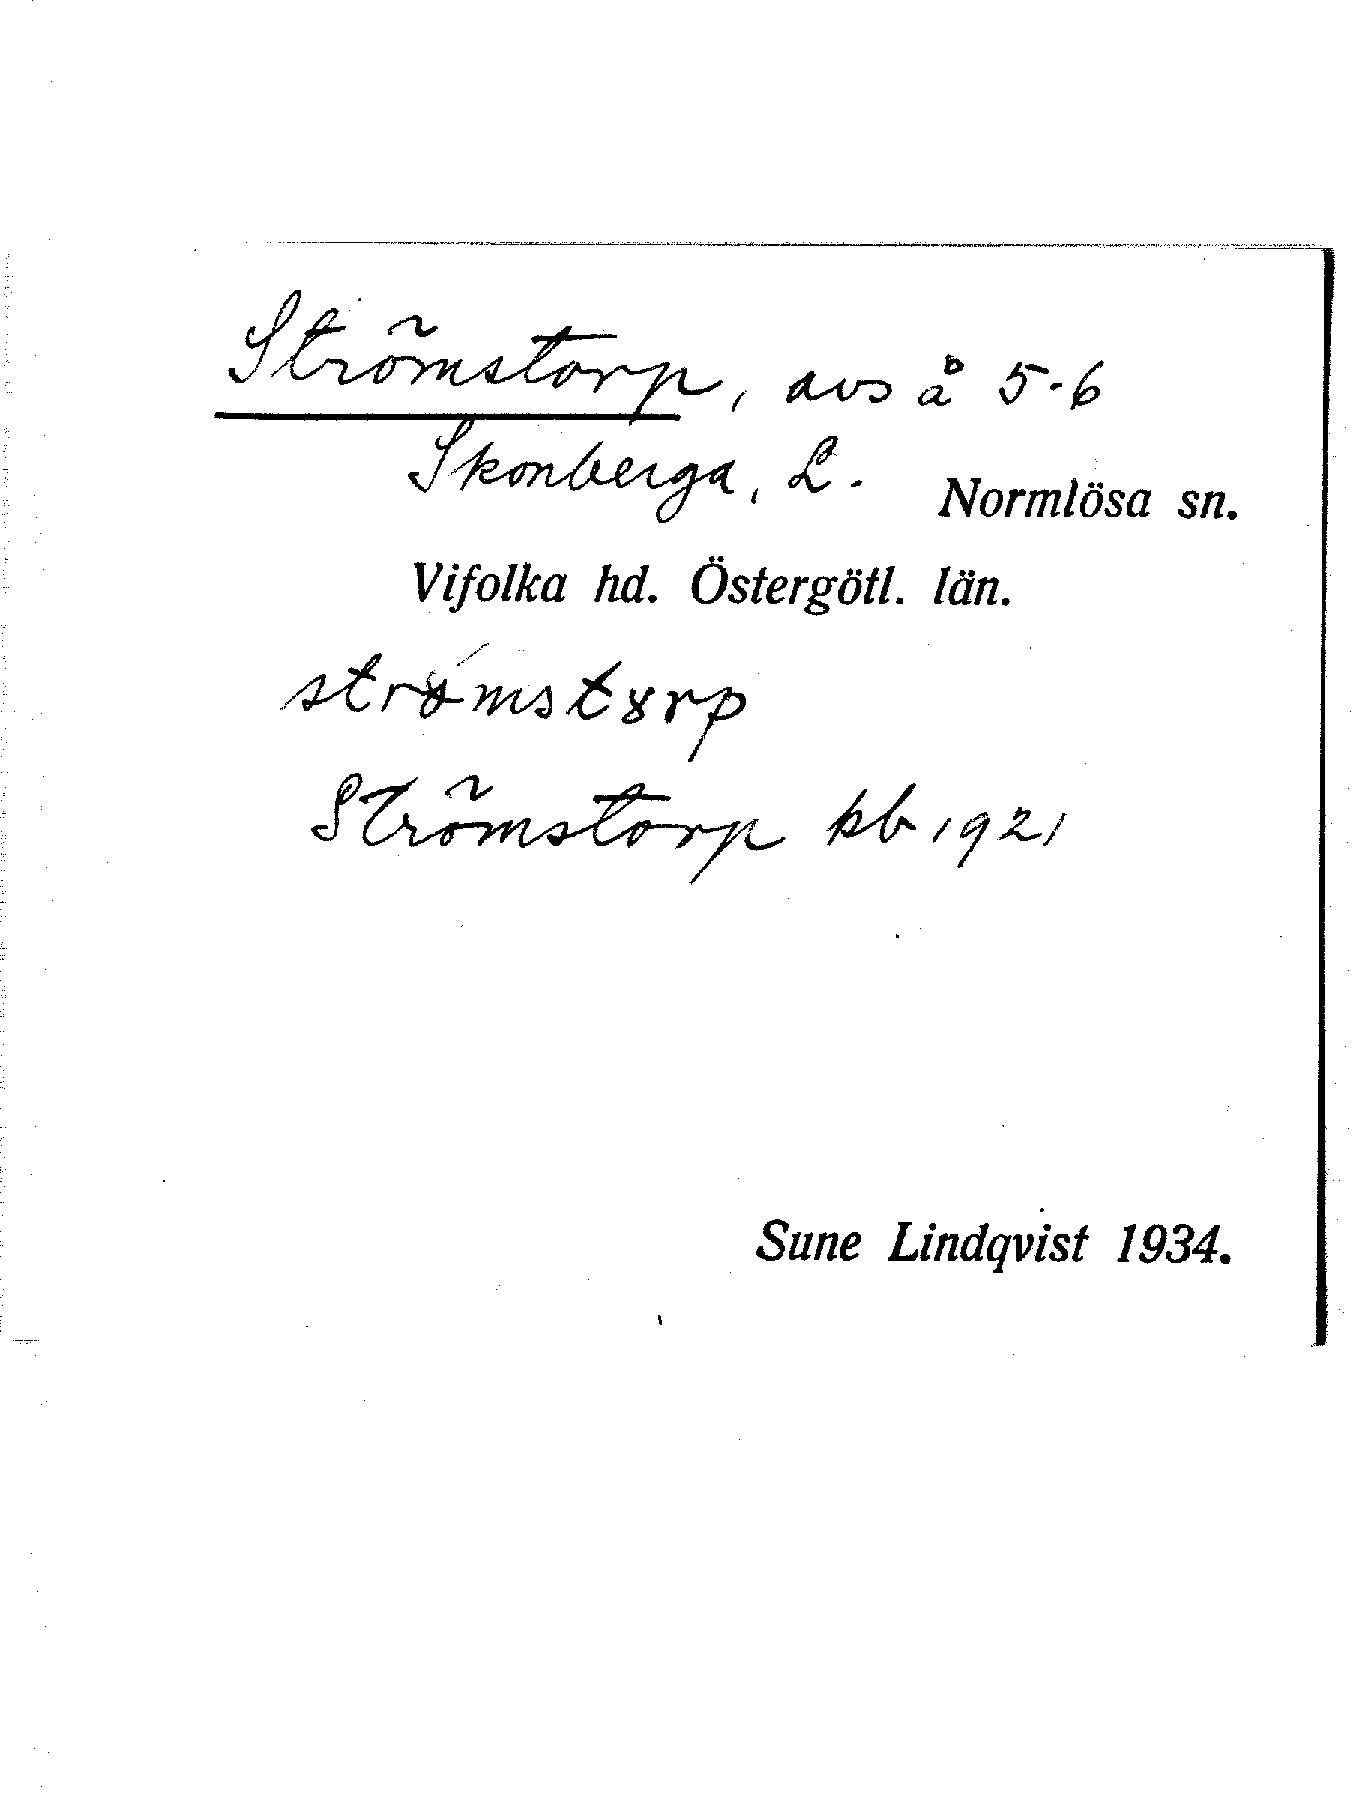 Strömstorp, avs å 5-6
Skonberga, L. Normlösa sn.
Vifolka hd. Östergötl. län.
Strömstorp kb 1921
Sune Lindqvist 1934.